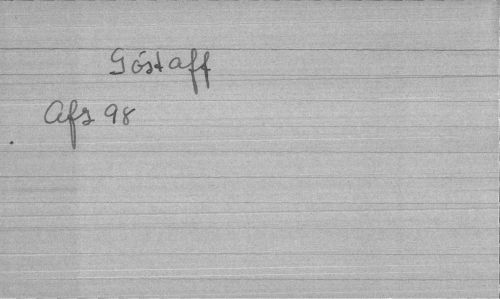 Góstaff
Afs 98